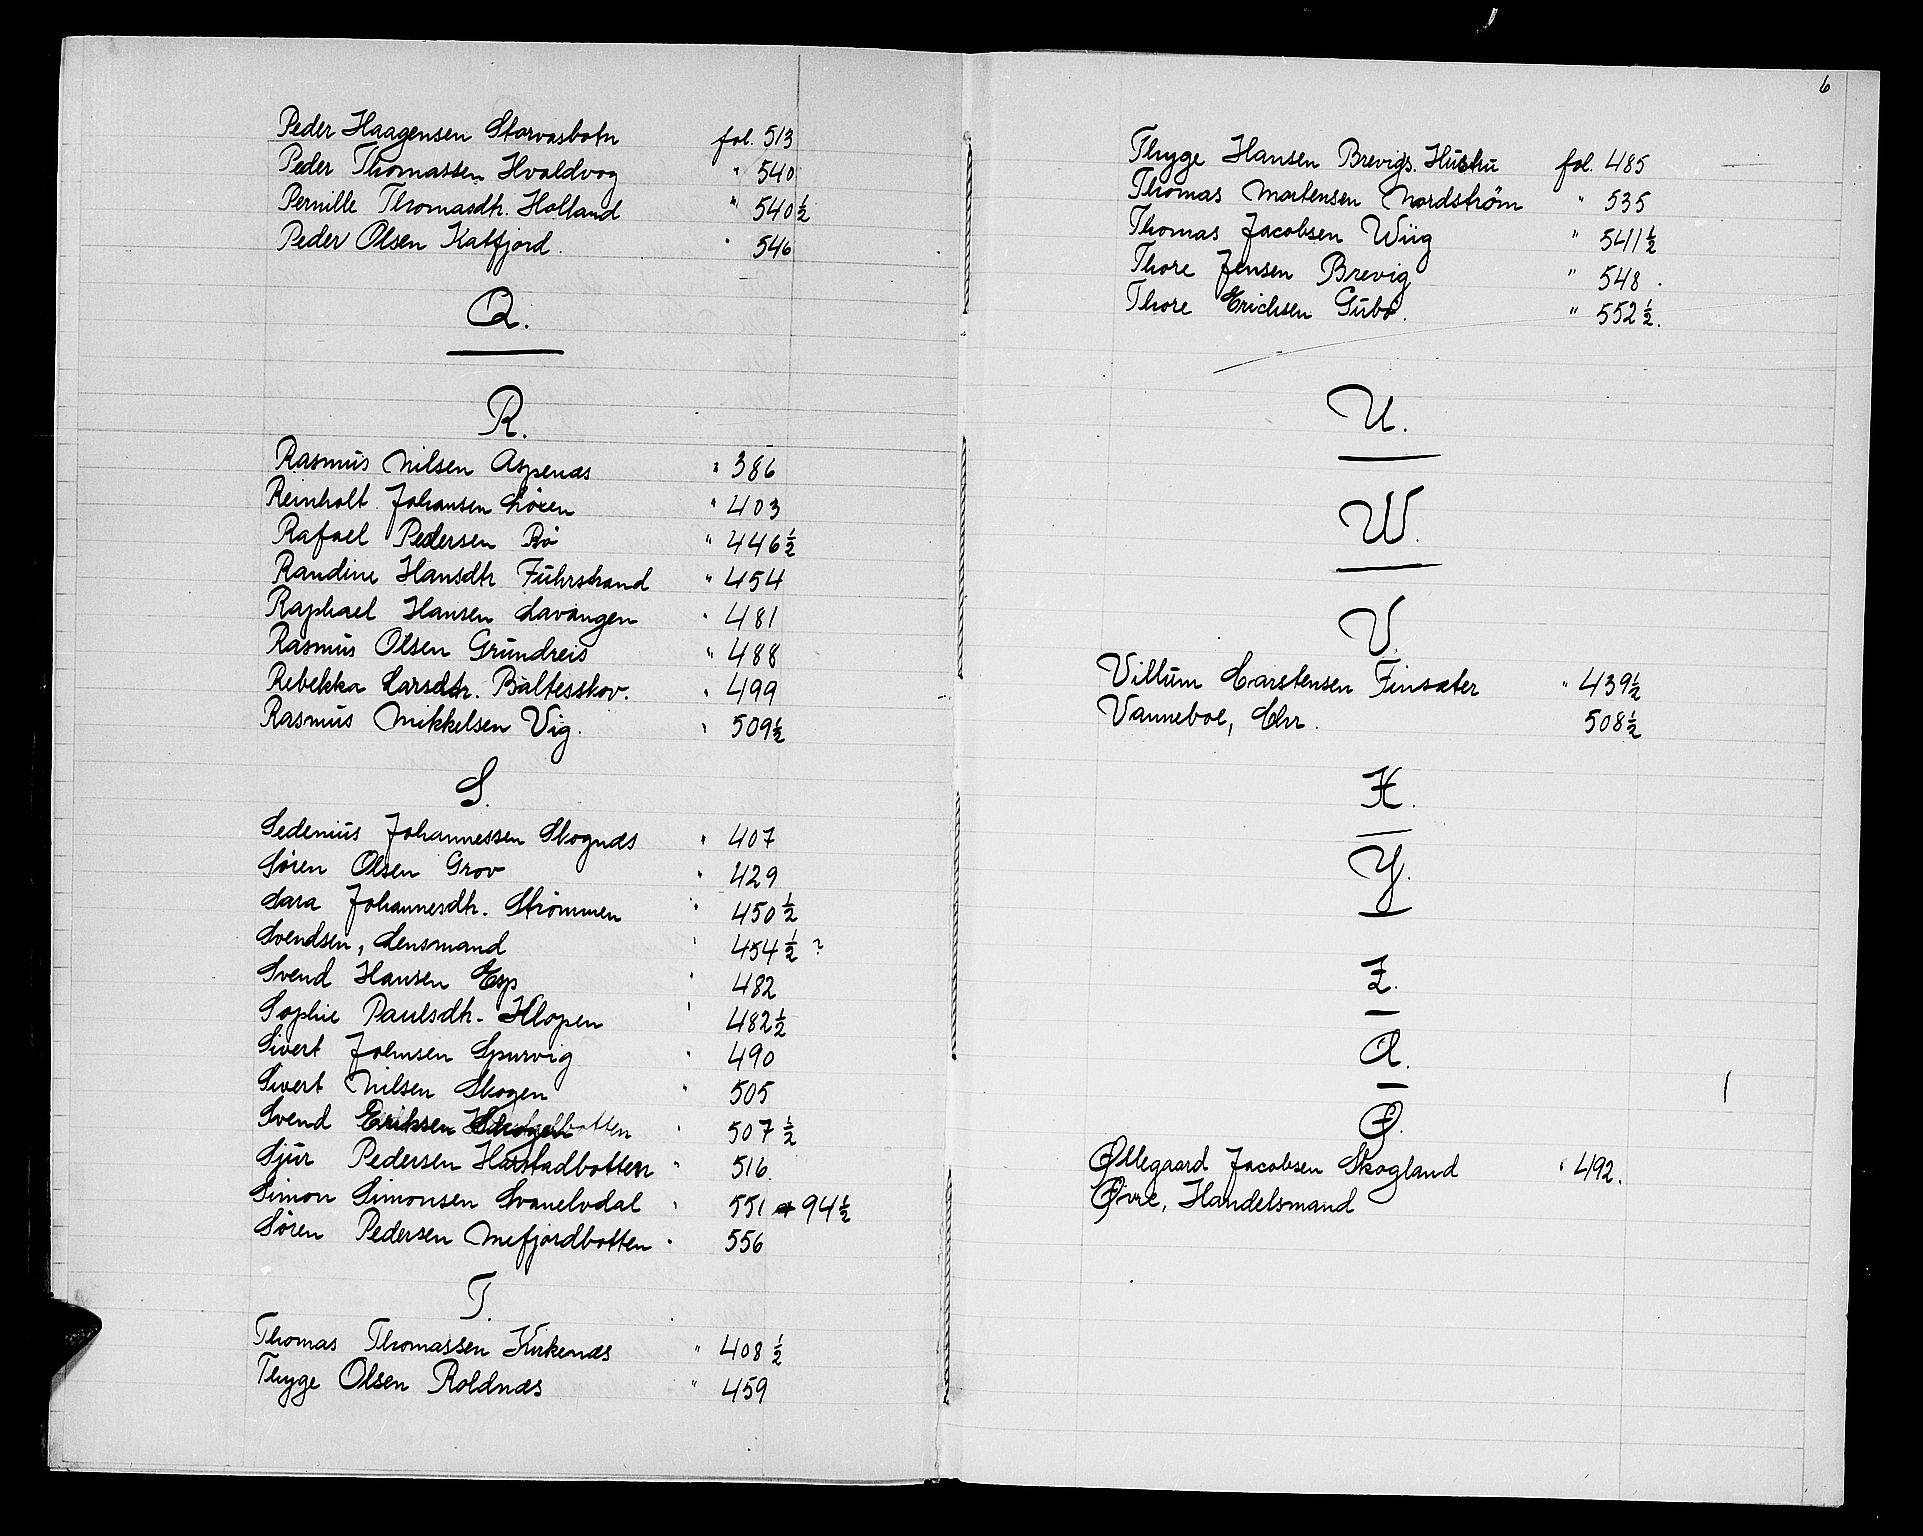 Peder Haagensen Storvasbotn fol. 513
Peder Thomassen Hvaldvog " 540
Pernille Thomasdtr. Holland " 540½
Peder Olsen Katfjord. " 546
Q.
R.
Rasmus Nilsen Aspenæs " 386
Reinholt Johansen Løsen " 403
Rafael Pedersen Bø " 446½
Randine Hansdtr Fuhrstrand " 454
Raphael Hansen Lavangen " 481
Rasmus Olsen Grundreis " 488
Rebekka Larsdtr. Baltesskov. " 499
Rasmus Mikkelsen Vig. " 509½
S.
Sedenius Johannessen Skognæs " 407
Søren Olsen Grov " 429
Sara Johannesdtr. Strømmen " 450½
Svendsen, Lensmand " 454½ ?
Svend Hansen Esp " 482
Sophie Paulsdtr. Klopen " 482½
Sivert Johnsen Spurvig " 490
Sivert Nilsen Skogen " 505
Svend Eriksen " 507½
Sjur Pedersen Harstadbotten " 516.
Simon Simonsen Svanelvdal " 551 94½
Søren Pedersen Mefjordbotten " 556
T.
Thomas Thomassen Kirkenæs " 408½
Thyge Olsen Roldnæs " 459
6
Thyge Hansen Brevigs. Hustru fol. 485
Thomas Mortensen Nordström " 535
Thomas Jacobsen Wiig " 541½
Thore Jensen Brevig " 548.
Thore Erichsen Gubø. " 552½.
U.
W.
V.
Villum Carstensen Finsæter " 439½
Vanneboe, Chr. 508½
X.
Y.
Z.
Æ.
Ø.
Øllegaard Jacobsen Skogland " 492.
Øvre, Handelsmand